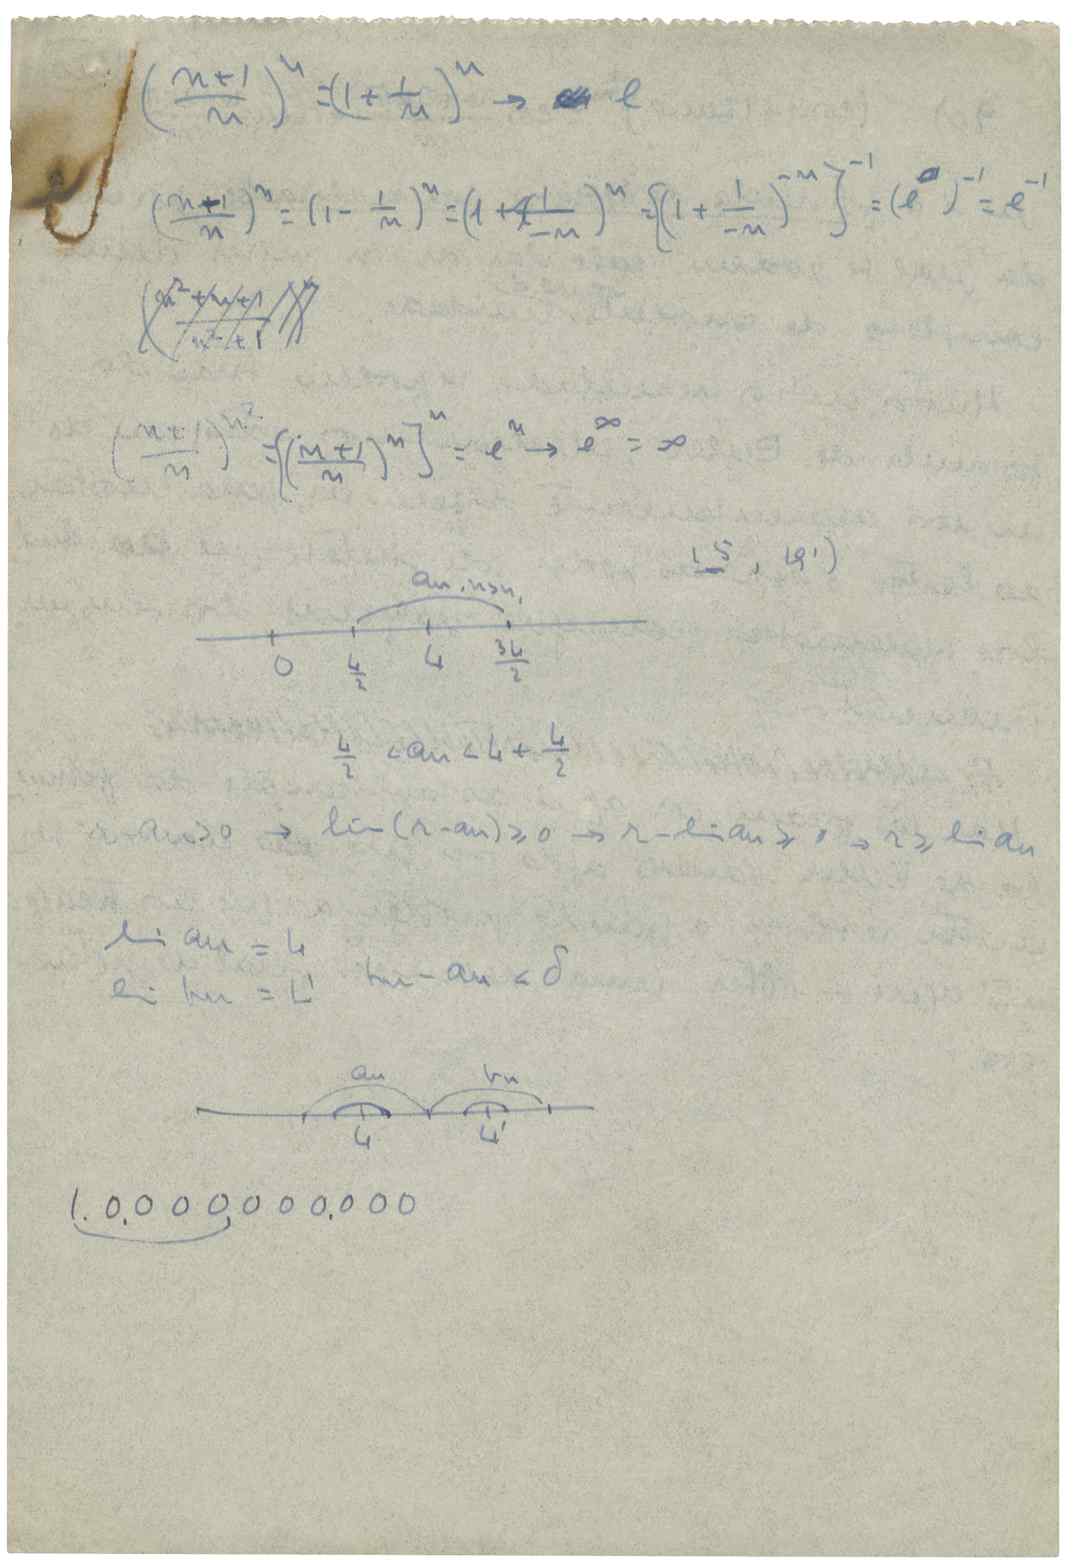 ((n+1)/n)^n = (1 + 1/n)^n → e
((n-1)/n)^n = (1 - 1/n)^n = (1 + 1/-n)^n = {(1 + 1/-n)^-n}^-1 = (e)^-1 = e^-1
((n+1)/n)^n² = {((n+1)/n)^n}^n = e^n → e^∞ = ∞
an, n>n,
0 L/2 L 3L/2
L/2 < an < L + L/2
r-an>0 → lim(r-an)≥0 → r-lim an≥0 → r≥lim an
lim an = L
lim bn = L' bn - an < δ
an bn
L L'
1.0,000,000,000